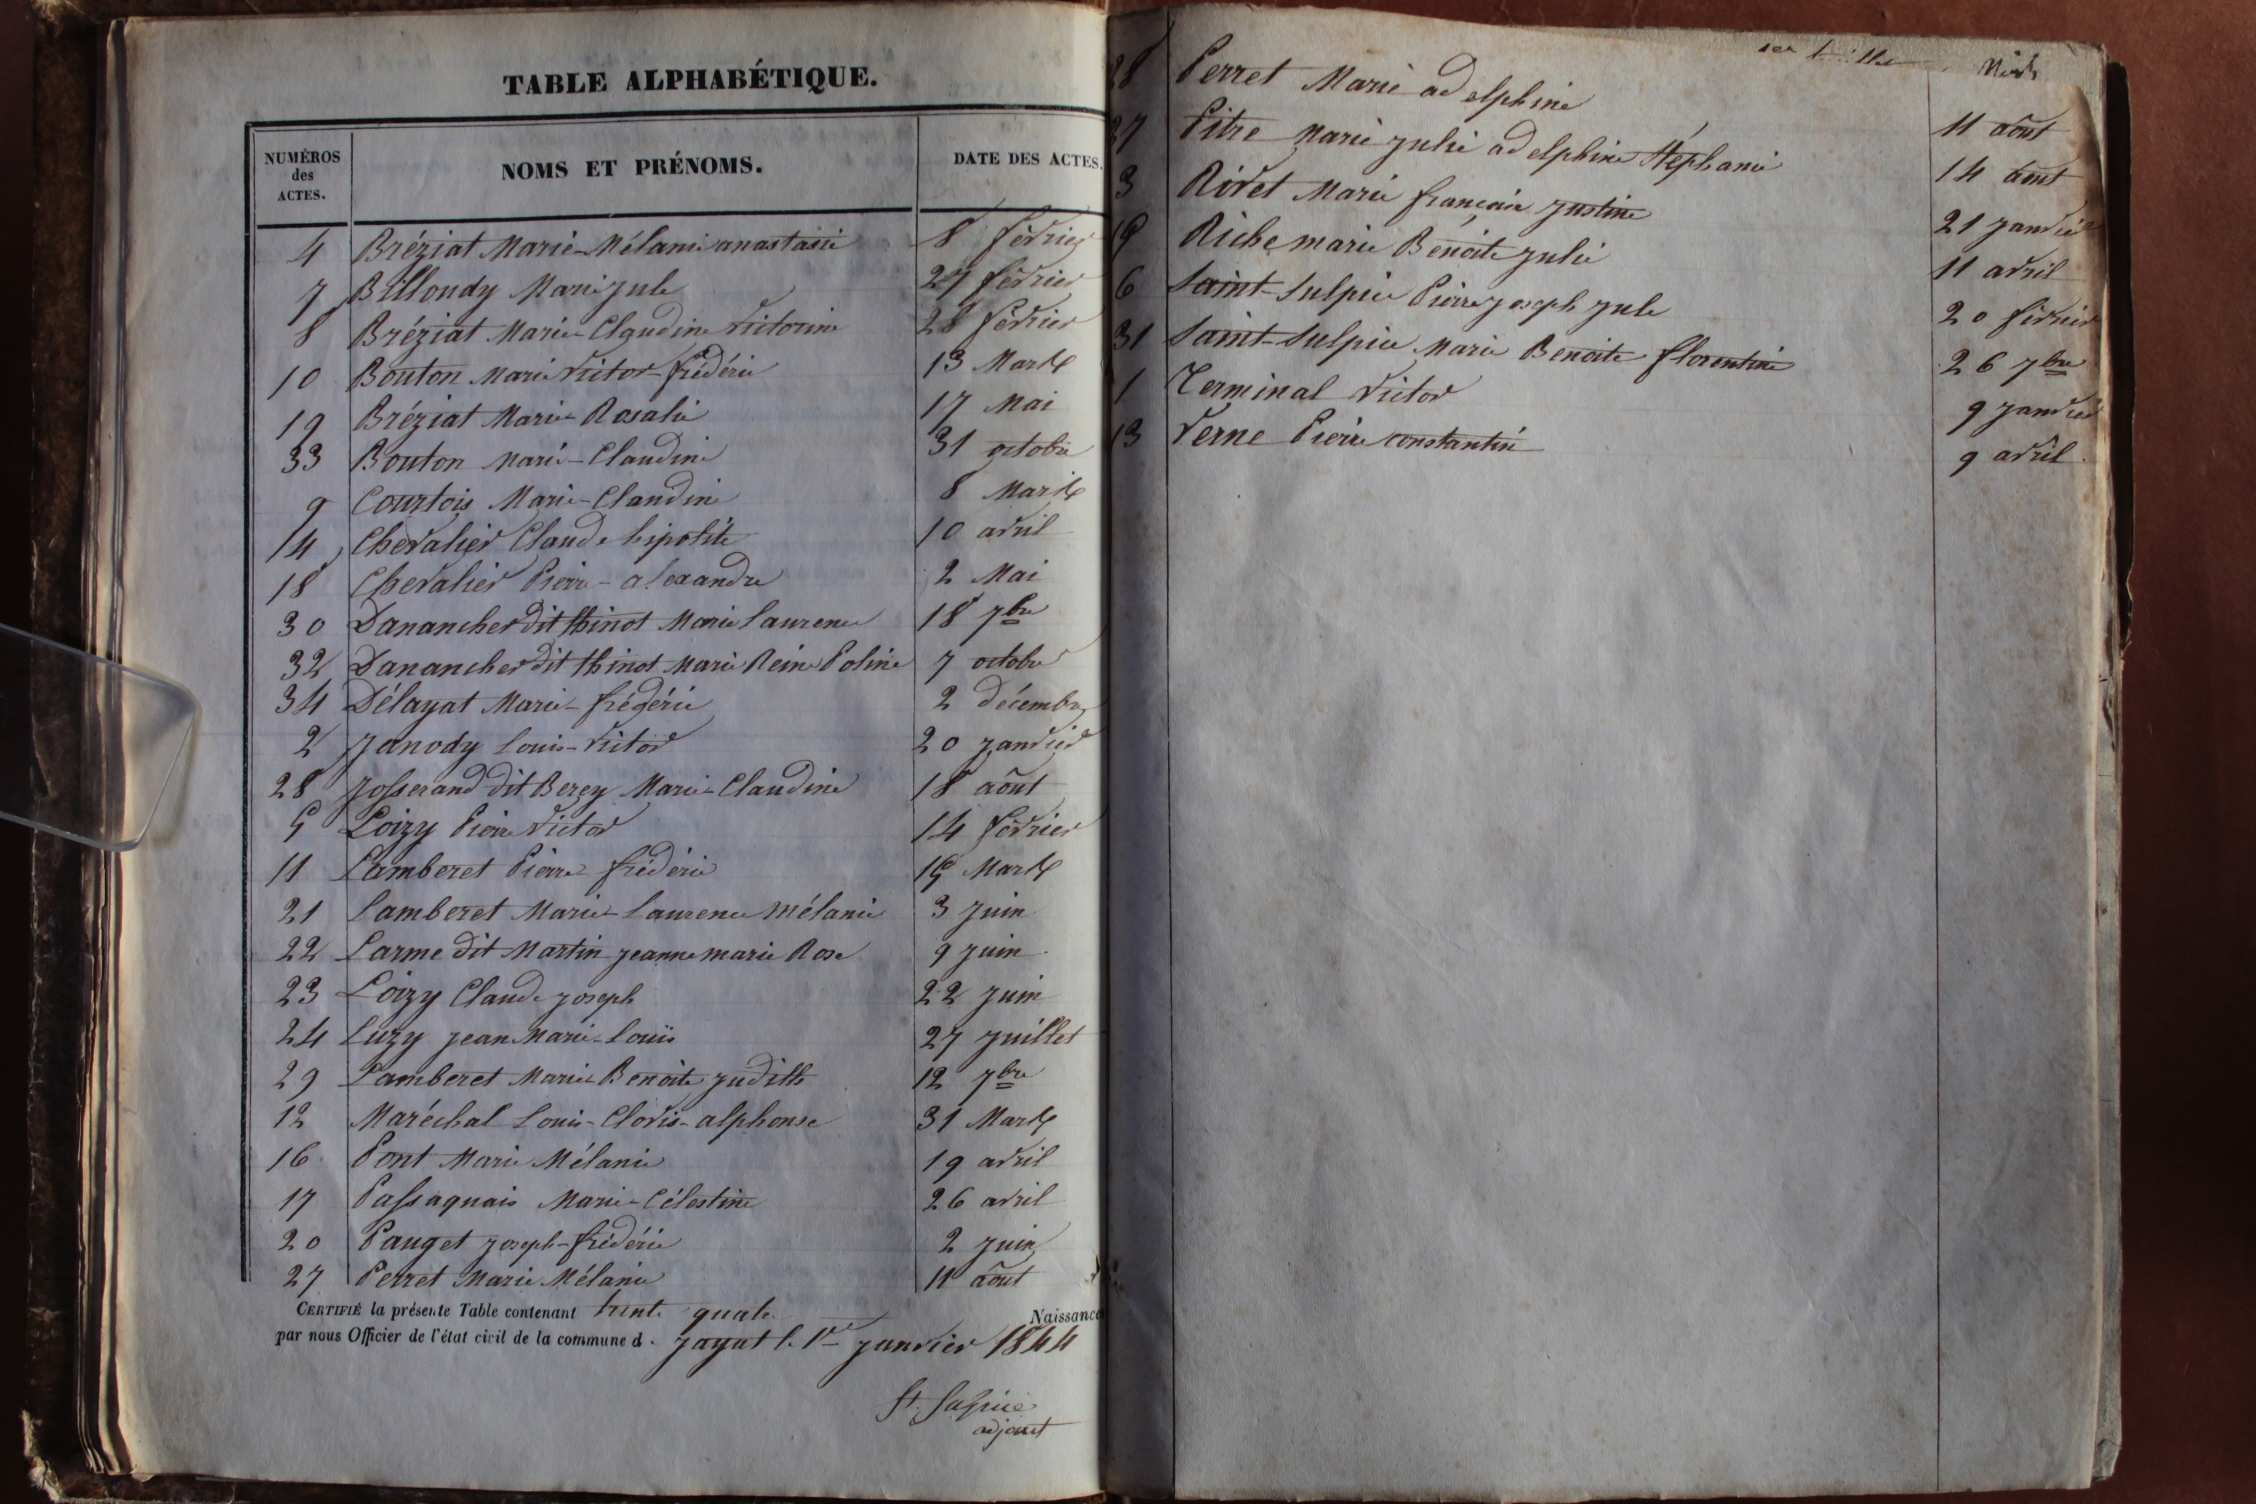 TABLE ALPHABÉTIQUE.
NUMÉROS
des
ACTES.
NOMS ET PRÉNOMS.
DATE DES ACTES.
4 Bréziat Marie-Mélani anastasie 8 février
7 Billoudy Marie jule 27 février
8 Bréziat Marie-Claudine Victorine 28 février
10 Bouton Marie Victor-frédéric 13 Mars
19 Bréziat Marie-Rosalie 17 Mai
33 Bouton Marie-Claudine 31 octobre
9 Courtois Marie-Claudine 8 Mars
14 Chevalier Claude hipolite 10 avril
18 Chevalier Pierre-alexandre 2 Mai
30 Danancher dit thinot Marie laurence 18 7bre
32 Danancher dit thinot Marie Reine Poline 7 octobre
34 Délayat Marie-frédéric 2 décembre
2 Janody Louis-Victor 20 janvier
28 Josserand dit Berey Marie-Claudine 18 août
5 Loizy Pierre Victor 14 février
11 Lamberet Pierre frédéric 15 Mars
21 Lamberet Marie-Laurence Mélanie 3 juin
22 Larme dit Martin jeanne marie Rose 9 juin
23 Loizy Claude joseph 22 juin
24 Luzy jean Marie-Louis 27 juillet
29 Lamberet Marie Benoite judith 12 7bre
12 Maréchal Louis-Clovis-alphonse 31 Mars
16 Pont Marie Mélanie 19 avril
17 Passaquais Marie-Célestine 26 avril
20 Pauget joseph-frédéric 2 juin
27 Perret Marie Mélanie 11 août
CERTIFIÉ la présente Table contenant trente quatre Naissance
par nous Officier de l'état civil de la commune d. Jayat le 1er janvier 1844
St. Sulpice
adjoint
28 Perret Marie adelphine 11 août
37 Pitre Marie julie adelphine Stéphanie 14 août
3 Rivet Marie françoise justine 21 janvier
Riche marie Benoite julie 11 avril
6 Saint-Sulpice Pierre joseph jule 20 février
31 Saint-Sulpice Marie Benoite florentine 26 7bre
1 Terminal Victor 9 janvier
13 Verne Pierre constantin 9 avril